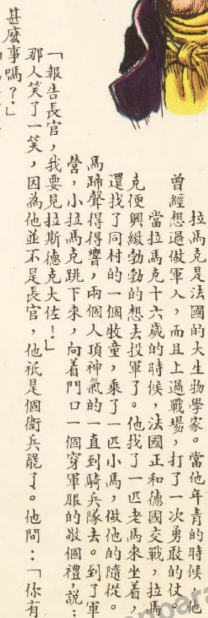 拉馬克是法國的大生物學家。當他年青的時候，他
曾經想過做軍人，而且上過戰場，打了一次勇敢的仗。
當拉馬克十六歲的時候，法國正和德國交戰，拉馬
克便興緻勃勃的想去投軍了。他找了一匹老馬來坐着，
還找了同村的一個牧童，乘了一匹小馬，做他的隨從。
馬蹄聲得得響，兩個人項神氣的一直到騎兵隊去。到了軍
營，小拉馬克跳下來，向着門口一個穿軍服的敬個禮，說：
「報告長官，我要見拉斯德克大佐！」
那人笑了一笑，因為他並不是長官，他祇是個衞兵罷了。他問：「你有
甚麼事嗎？」